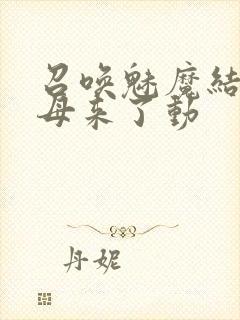 召唤魅魔结
母来了动
丹妮